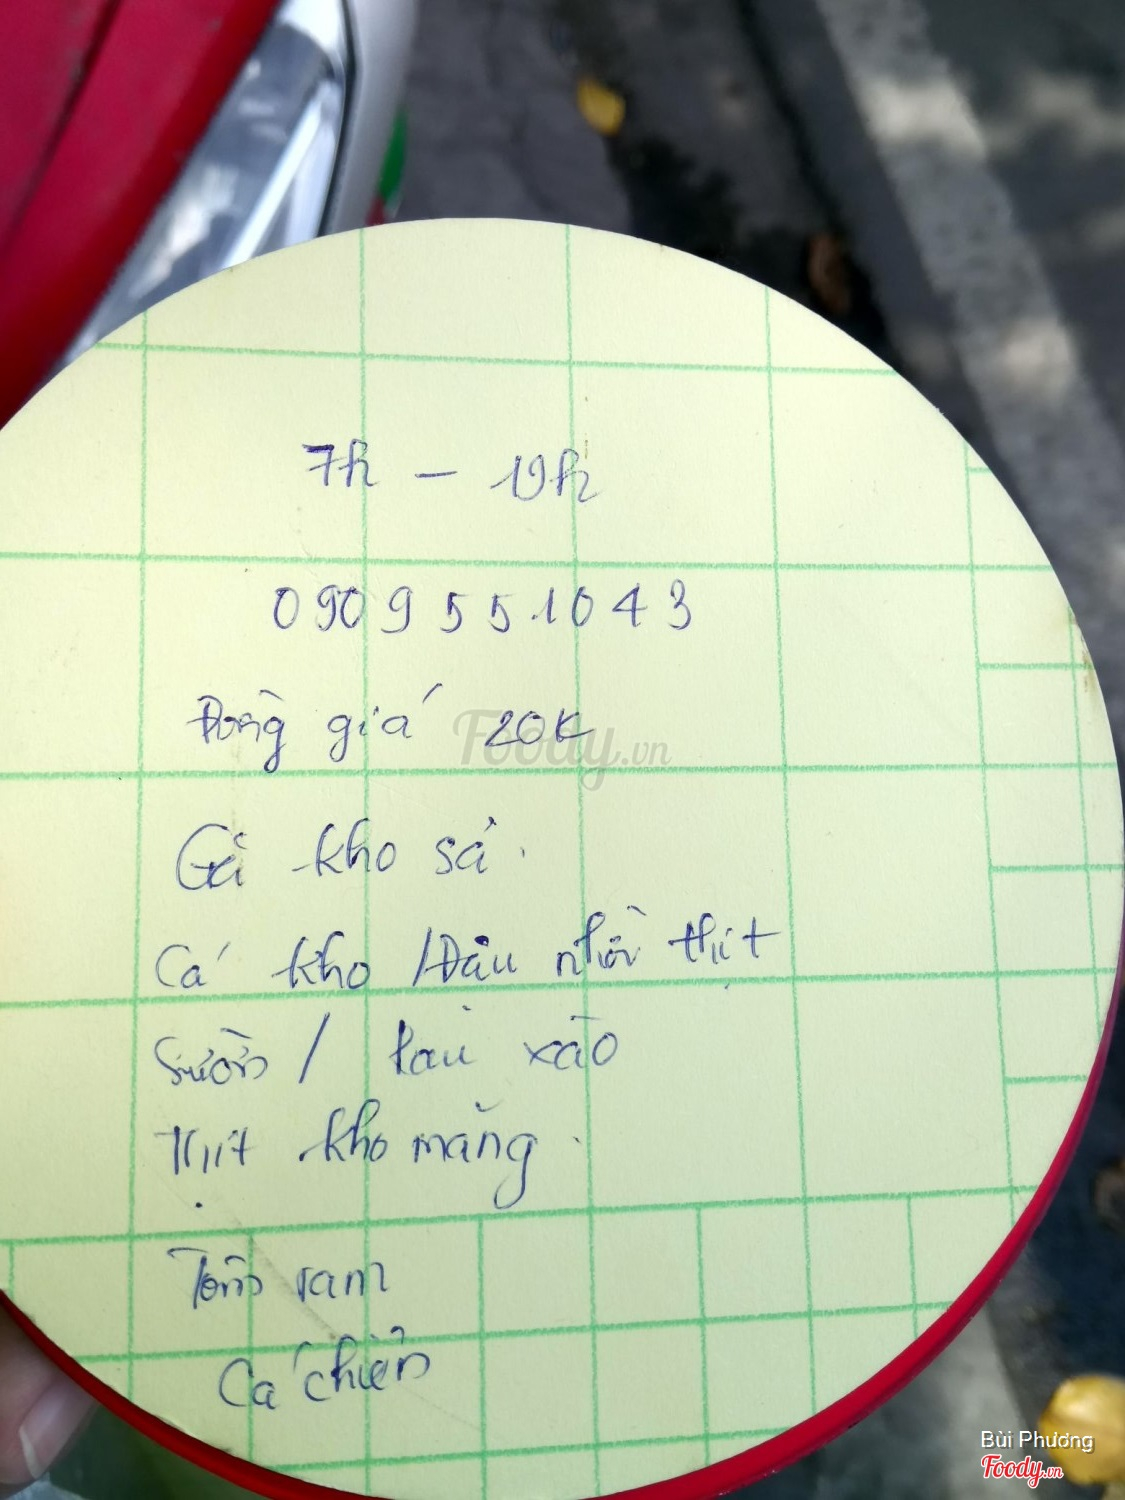 7h - 19h
0909551043
Đồng giá 20K
Gà kho sả.
Cá kho / Đậu nhồi thịt
Sườn / xào
Thịt kho măng.
Tôm ram
Cá chiên
Foody.vn
Bùi Phương
Foody.vn